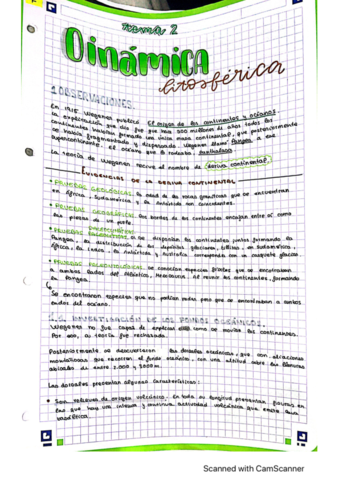 tema 2
Dinámica
litosférica
1 OBSERVACIONES.
En 1915 Wegener publicó El origen de los continentes y océanos.
La explicación que dio fue que hace 300 millones de años todos los
continentes habían formado una única masa continental, que posteriormente
se había fragmentado y dispersado. Wegener llamó Pangea a ese
supercontinente. El océano que lo rodeaba, Panthalassa.
La teoría de Wegener recibe el nombre de deriva continental.
EVIDENCIAS DE LA DERIVA CONTINENTAL
• PRUEBAS GEOLÓGICAS: la edad de las rocas graníticas que se encuentran
en África, Sudamérica y la Antártida son coincidentes.
• PRUEBAS GEOGRÁFICAS: los bordes de los continentes encajan entre sí como
las piezas de un puzle.
• PRUEBAS PALEOCLIMÁTICAS: si se disponían los continentes juntos formando la
Pangea, la distribución de los depósitos glaciares, tillitas, en Sudamérica,
África, la India, la Antártida y Australia correspondía con un casquete glaciar.
• PRUEBAS PALEONTOLÓGICAS: se conocían especies fósiles que se encontraban
a ambos lados del Atlántico, Mesosaurus, al reunir los continentes, formando
la Pangea.
Se encontraron especies que no podían nadar pero que se encontraban a ambos
lados del océano.
1.2. INVESTIGACIÓN DE LOS FONDOS OCEÁNICOS.
Wegener no fue capaz de explicar cómo se movían los continentes.
Por eso, su teoría fue rechazada.
Posteriormente se descubrieron las dorsales oceánicas, que son alineaciones
montañosas que recorren el fondo oceánico, con una altitud sobre las llanuras
abisales de entre 2.000 y 3000 m.
Las dorsales presentan algunas características:
• Son relieves de origen volcánico. En toda su longitud presentan fisuras en
las que hay una intensa y continua actividad volcánica que emite lava
basáltica.
Scanned with CamScanner